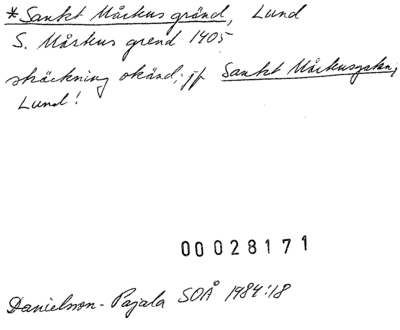 *Sankt Mårkus gränd, Lund
S. Mårkus grend 1405
sträckning okänd; jfr Sankt Mårkusgatan,
Lund!
00028171
Danielsson-Pajala SOÅ 1984:18